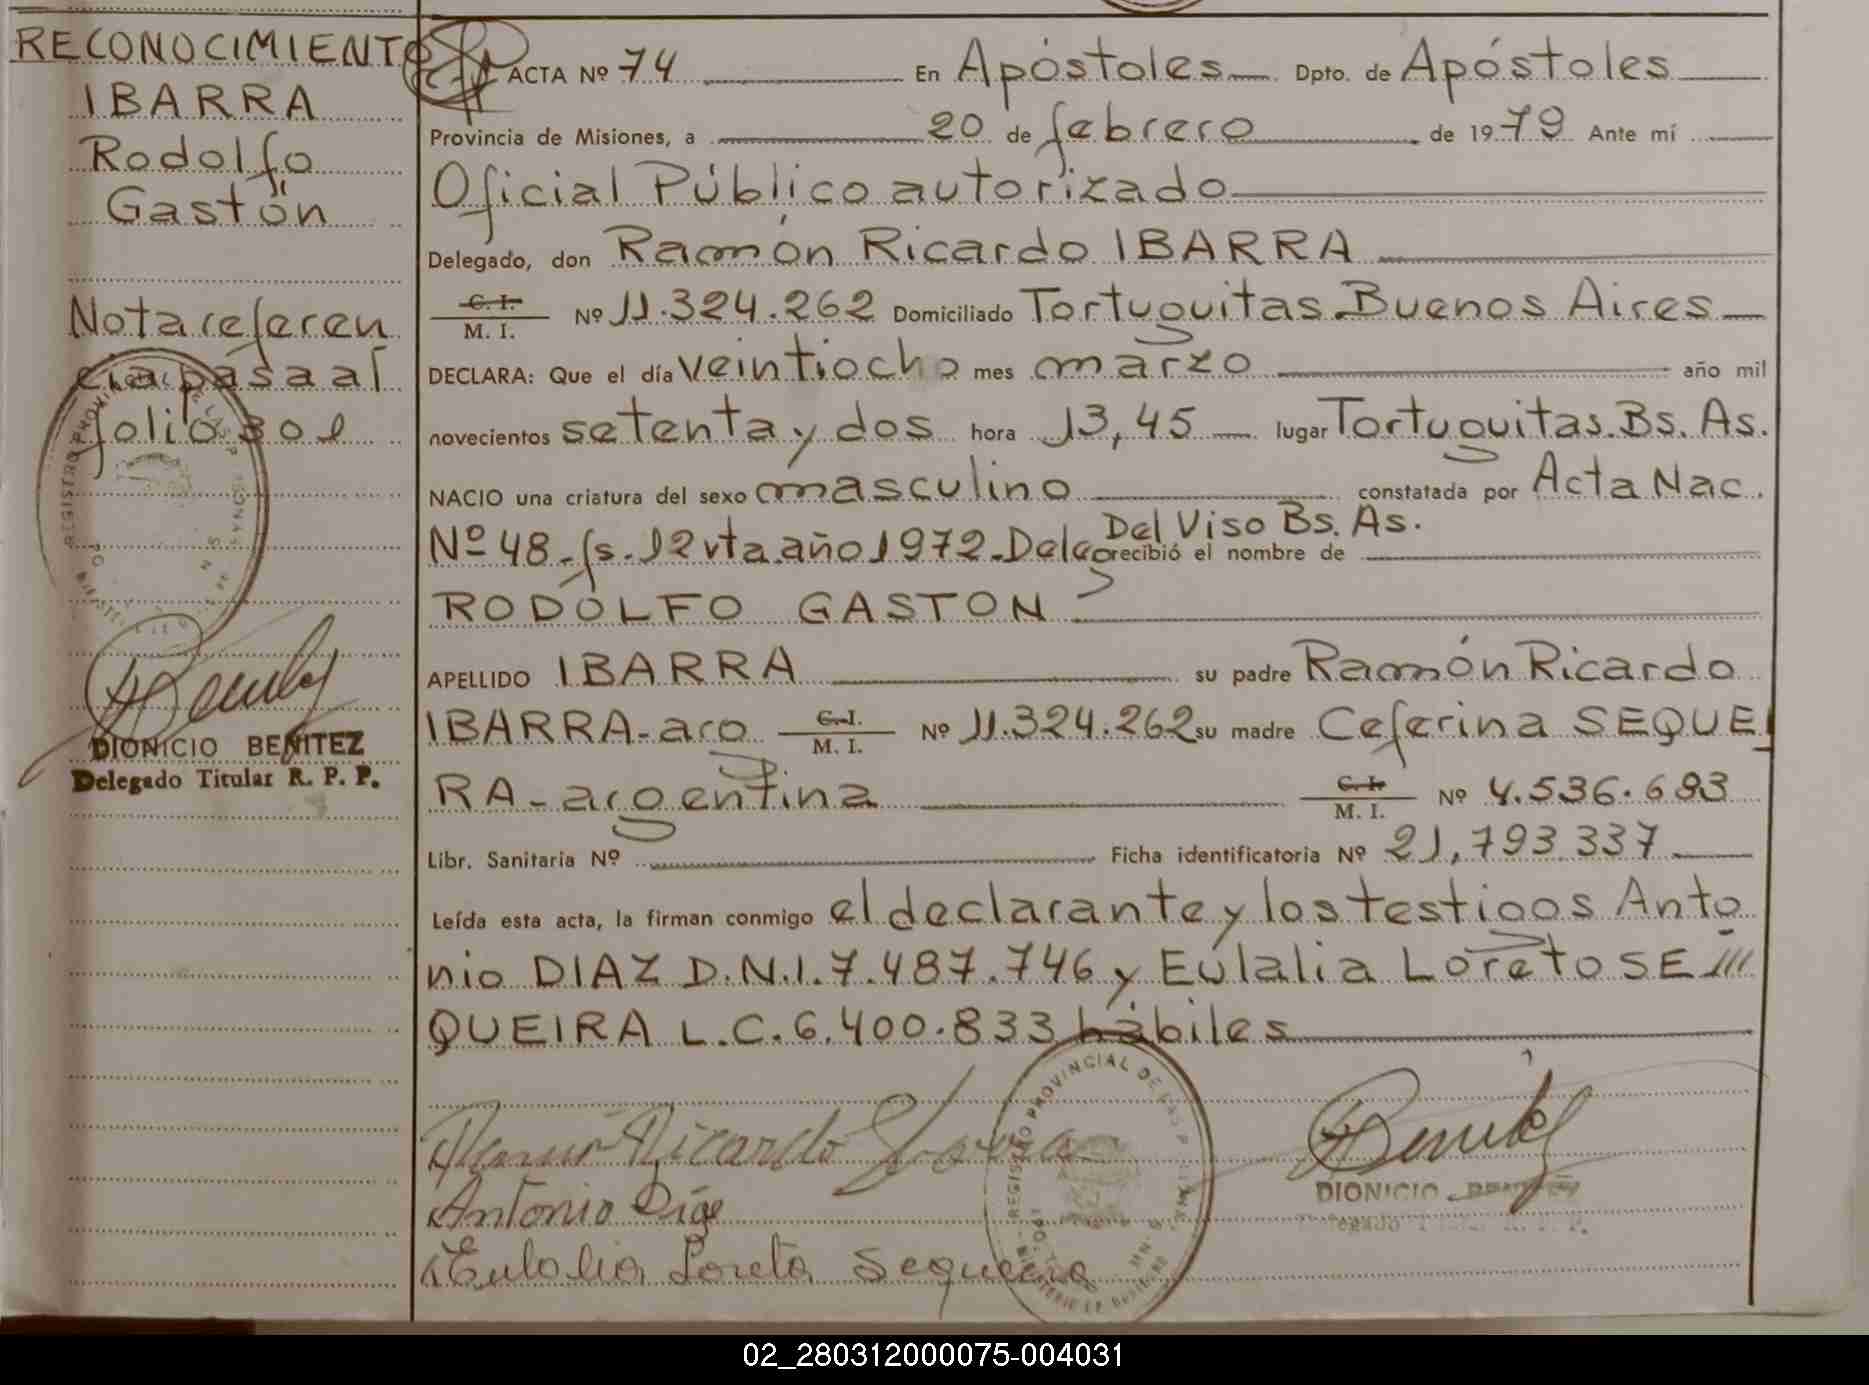 RECONOCIMIENTO
IBARRA
Rodolfo
Gastón
Nota referen
cia pasa al
folio 301
DIONICIO BENITEZ
Delegado Titular R. P. P.
ACTA Nº 74 En Apóstoles Dpto. de Apóstoles
Provincia de Misiones, a 20 de febrero de 1979 Ante mí
Oficial Público autorizado
Delegado, don Ramón Ricardo IBARRA
C. I.
M. I. Nº 11.324.262 Domiciliado Tortuguitas. Buenos Aires
DECLARA: Que el día veintiocho mes marzo año mil
novecientos setenta y dos hora 13,45 lugar Tortuguitas. Bs. As.
NACIO una criatura del sexo masculino constatada por Acta Nac.
Del Viso Bs. As.
Nº 48-fs. 12 vta. año 1972-Deleg recibió el nombre de
RODÓLFO GASTON
APELLIDO IBARRA su padre Ramón Ricardo
IBARRA-arg C. I.
M. I. Nº 11.324.262 su madre Ceferina SEQUEI
RA-argentina C. I.
M. I. Nº 4.536.693
Libr. Sanitaria Nº Ficha identificatoria Nº 21,793.337
Leída esta acta, la firman conmigo el declarante y los testigos Anto
nio DIAZ D.N.I. 7.487.746 y Eulalia Loreto SE ///
QUEIRA L.C. 6.400.833 hábiles
Ramon Ricardo Ibarra
Antonio Diaz
Eulalia Loreta Sequeira
REGISTRO PROVINCIAL DE LAS P
DIONICIO BENITEZ
Delegado Titular R. P. P.
02_280312000075-004031